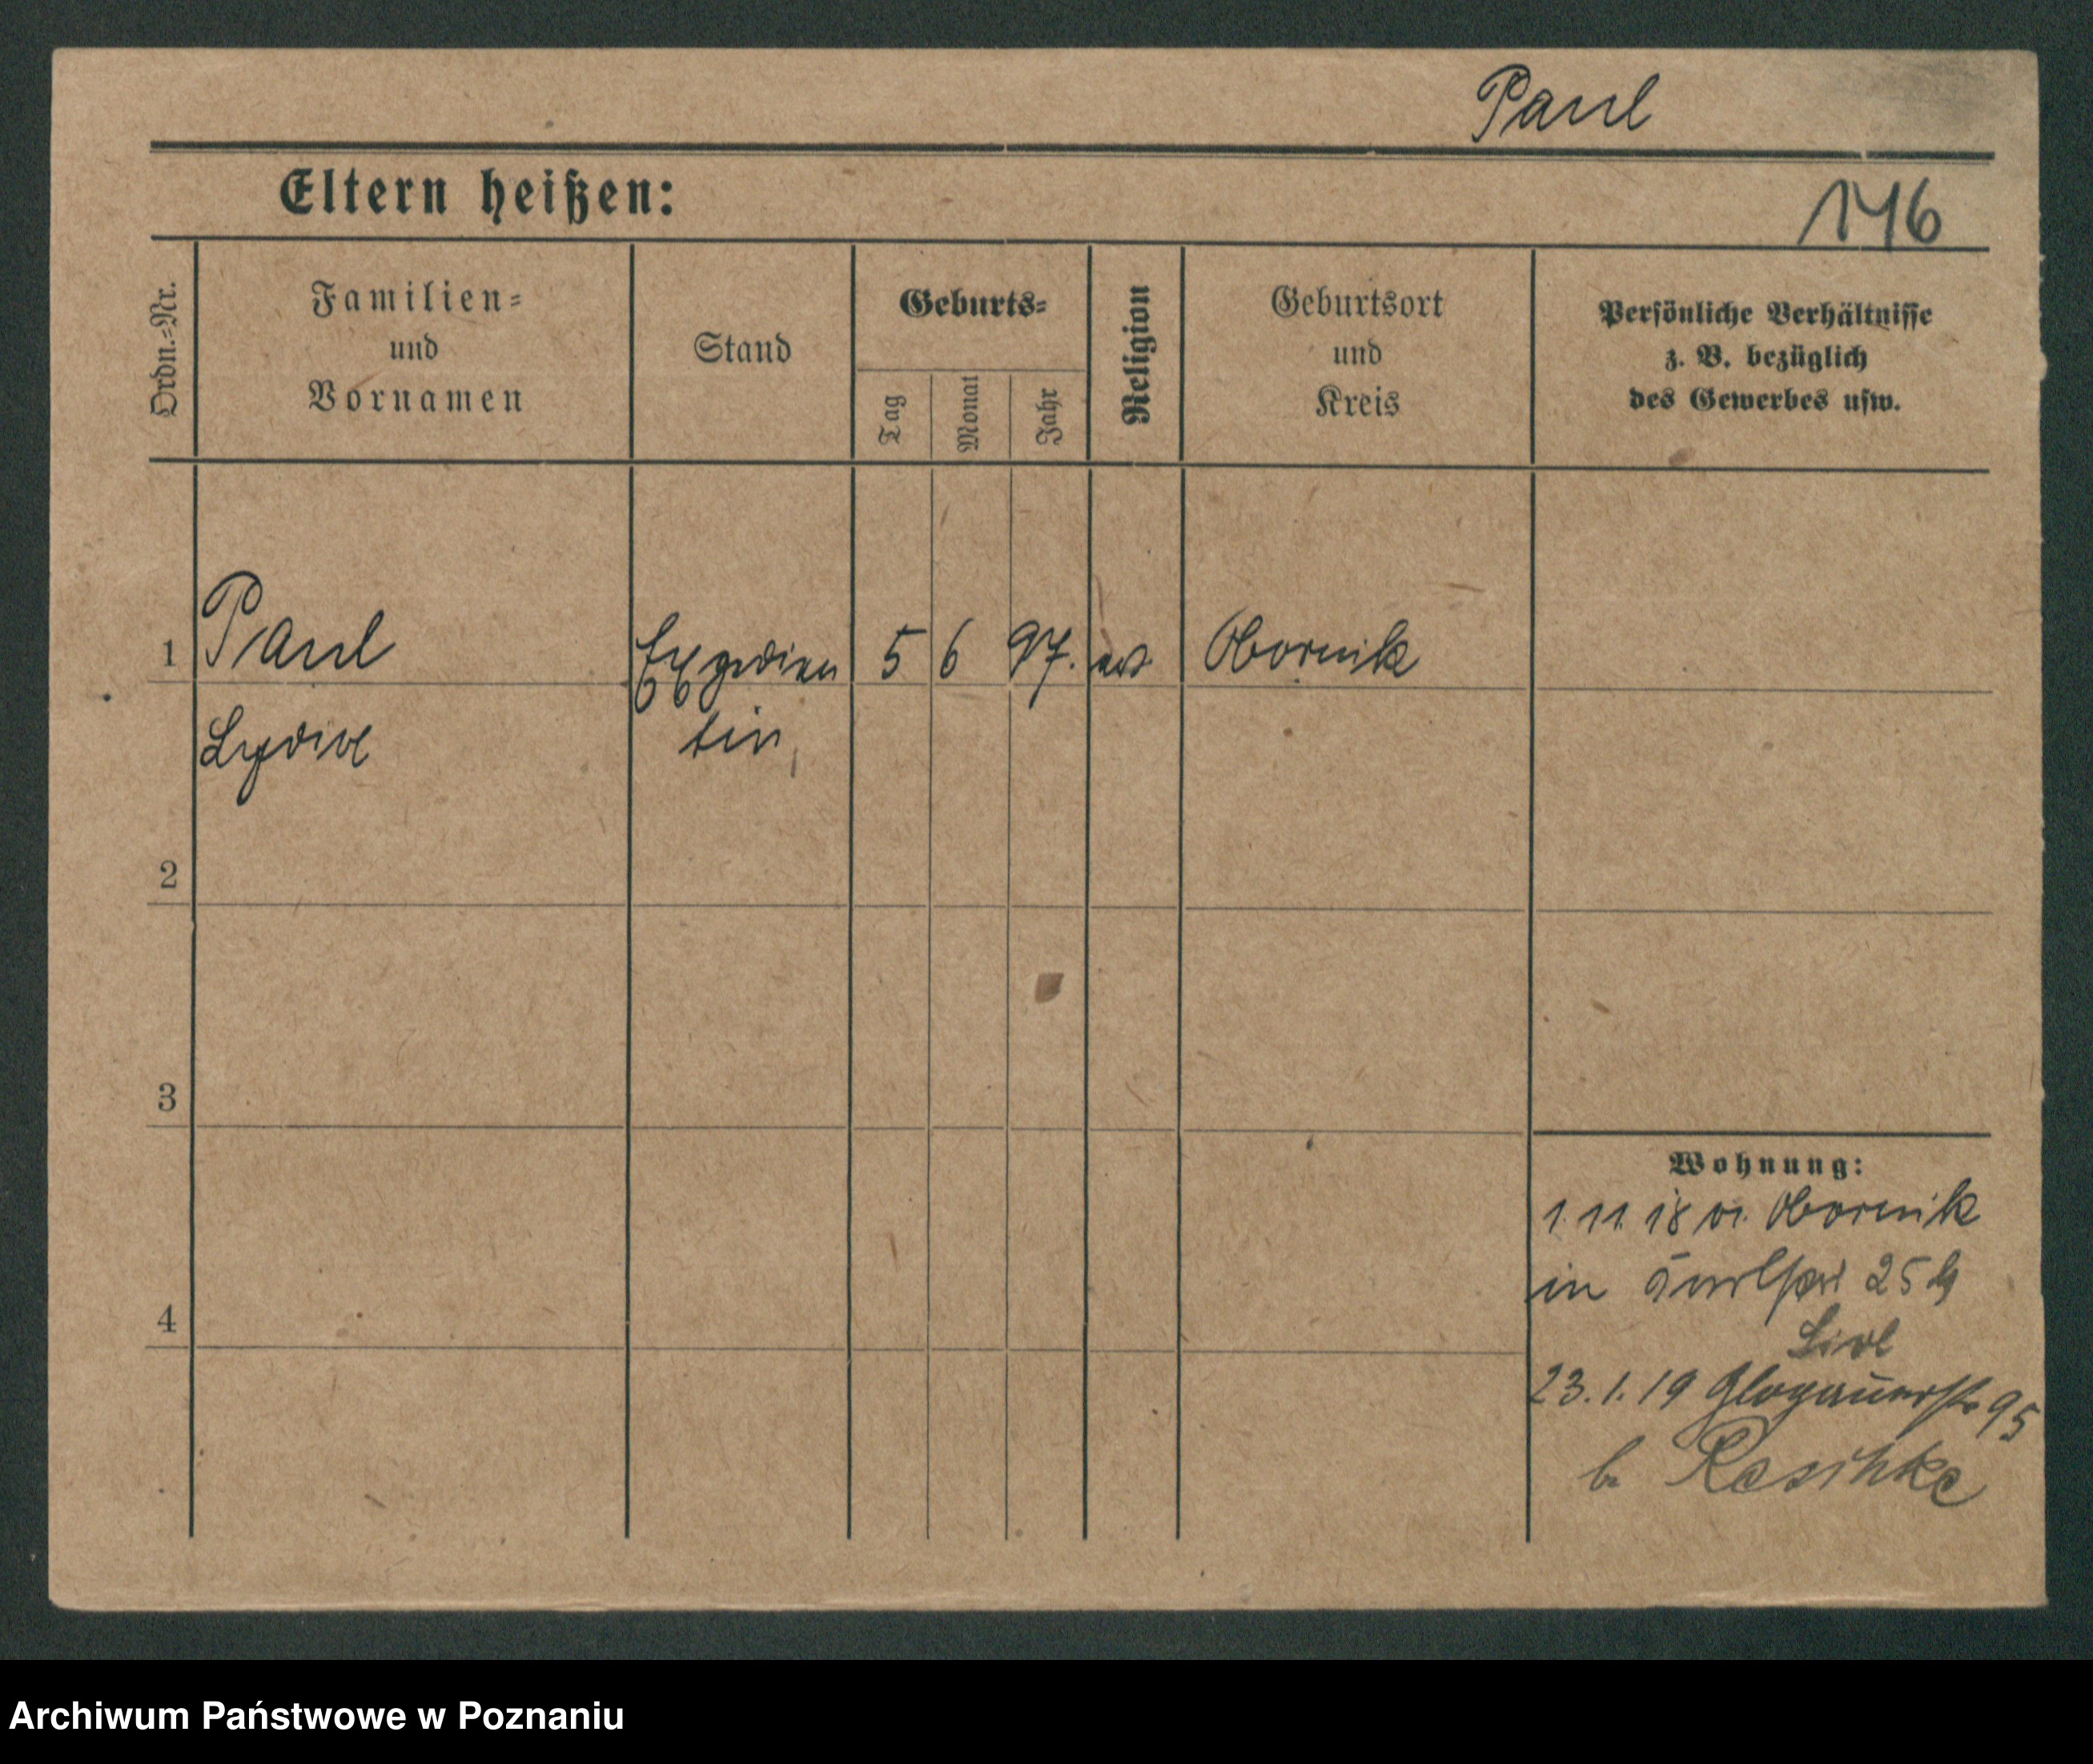 Paul
Eltern heißen:
146
Ordn.=Nr.
Familien=
und
Vornamen
Stand
Geburts=
Tag
Monat
Jahr
Religion
Geburtsort
und
Kreis
Persönliche Verhältnisse
z. B. bezüglich
des Gewerbes usw.
1 Paul Expedien 5 6 97. ev. Obornik
Lydia tin
2
3
4
Wohnung:
1.11.18 v. Obornik
in 25
23.1.19 Glogauerstr 95
b. Raschke
Archiwum Państwowe w Poznaniu